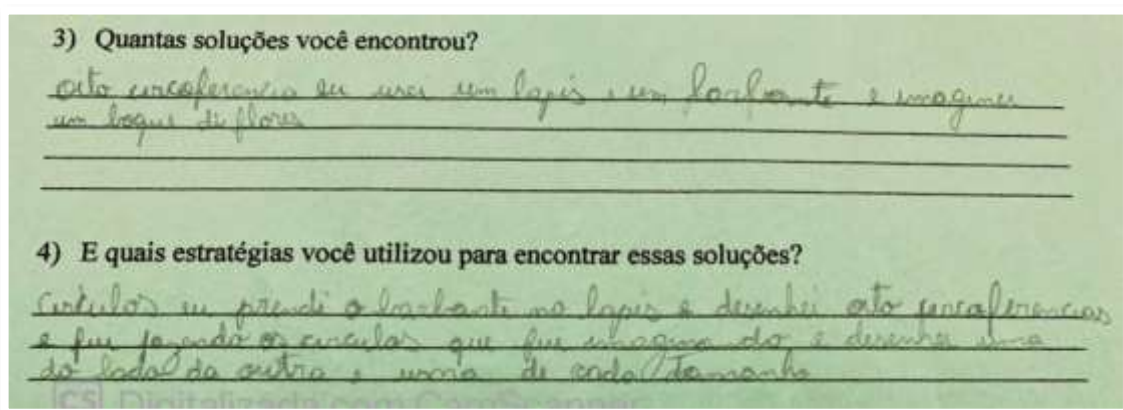 3) Quantas soluções você encontrou?
oito circoferencia eu usei um lapis e um barbante e imaginei
um boque di flores
4) E quais estratégias você utilizou para encontrar essas soluções?
circulos eu prendi o barbante no lapis e desenhei oito circoferencias
e fui fazendo os circulos que fui imaginando e desenhei uma
do lado da outra e uma de cada tamanho
CS Digitalizada com CamScanner